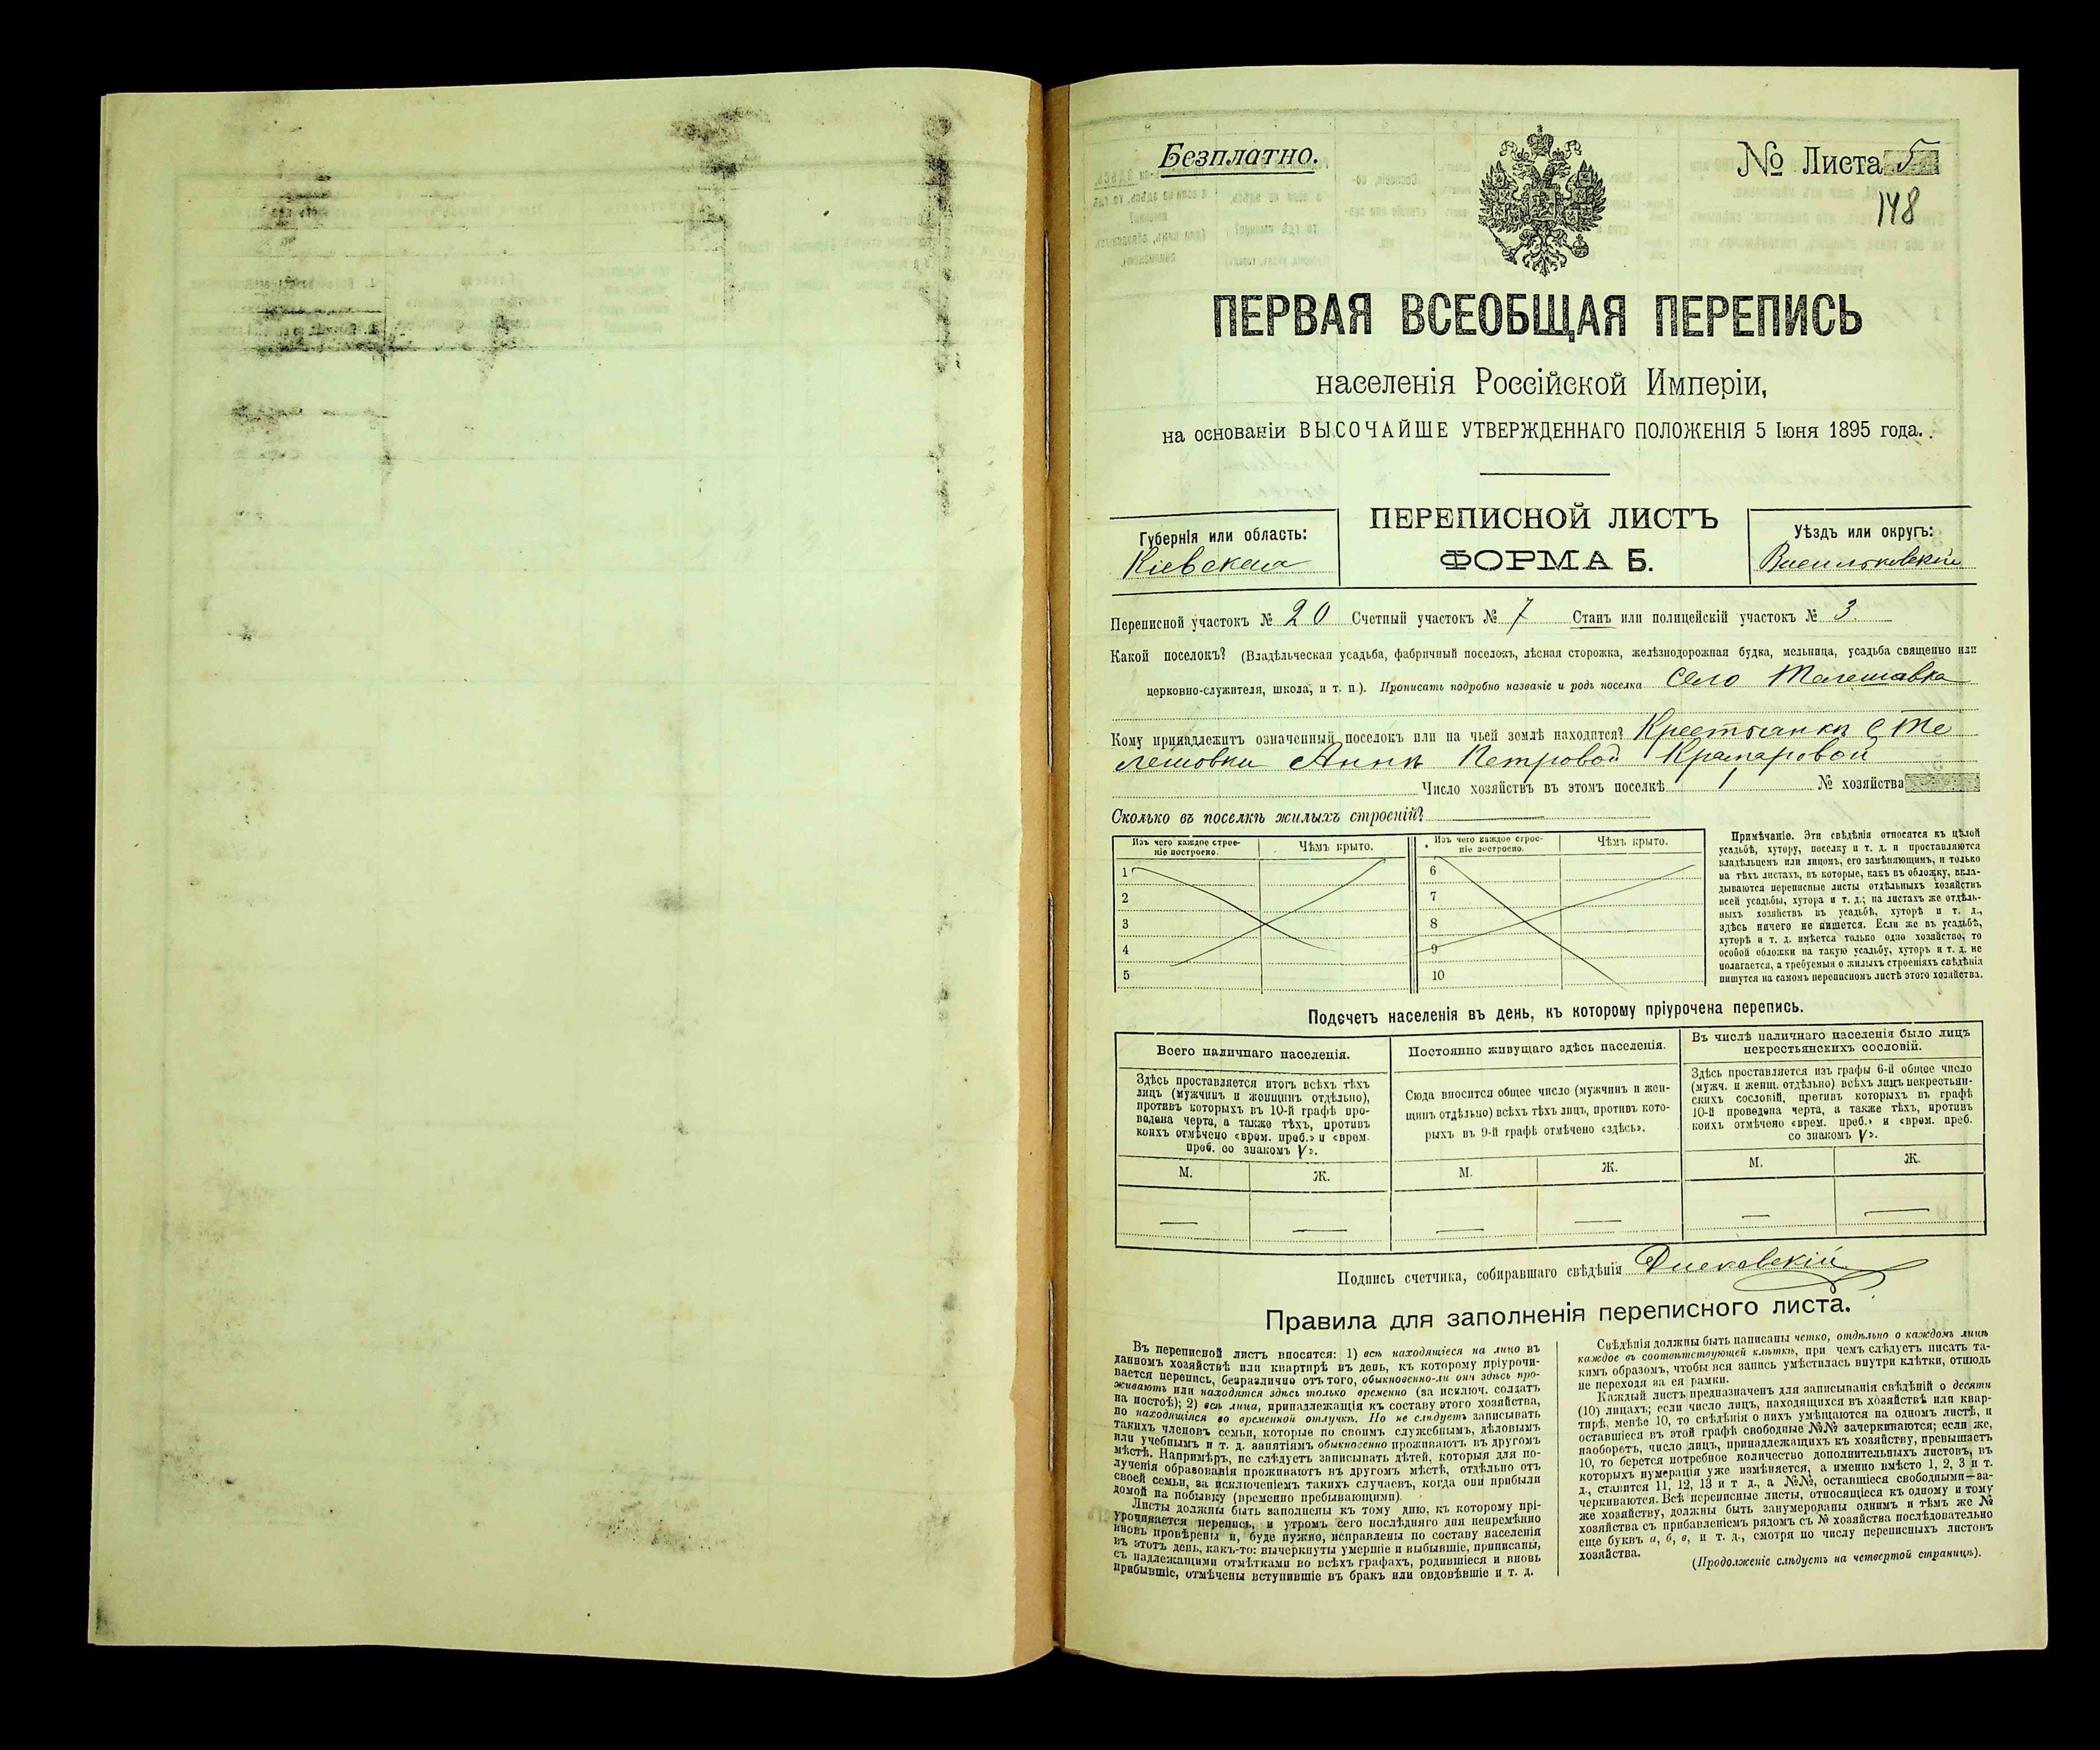 Безплатно.
№ Листа 5
148
ПЕРВАЯ ВСЕОБЩАЯ ПЕРЕПИСЬ
населенія Россійской Имперіи,
на основаніи ВЫСОЧАЙШЕ УТВЕРЖДЕННАГО ПОЛОЖЕНІЯ 5 Іюня 1895 года.
ПЕРЕПИСНОЙ ЛИСТЪ
ФОРМА Б.
Губернія или область:
Кіевская
Уѣздъ или округъ:
Васильковскій
Переписной участокъ № 20 Счетный участокъ № 7 Станъ или полицейскій участокъ № 3.
Какой поселокъ? (Владѣльческая усадьба, фабричный поселокъ, лѣсная сторожка, желѣзнодорожная будка, мельница, усадьба священно или
церковно-служителя, школа, и т. п.). Прописать подробно названіе и родъ поселка Село Телешовка
Кому принадлежитъ означенный поселокъ или на чьей землѣ находится? Крестьянки с Те
лешовки Анны Петровой Крамаровой
Число хозяйствъ въ этомъ поселкѣ 1 № хозяйства
Сколько въ поселкѣ жилыхъ строеній?
Изъ чего каждое строе-
ніе построено.
Чѣмъ крыто.
Изъ чего каждое строе-
ніе построено.
Чѣмъ крыто.
1
2
3
4
5
6
7
8
9
10
Примѣчаніе. Эти свѣдѣнія относятся къ цѣлой
усадьбѣ, хутору, поселку и т. д. и проставляются
владѣльцемъ или лицомъ, его замѣняющимъ, и только
на тѣхъ листахъ, въ которые, какъ въ обложку, вкла-
дываются переписные листы отдѣльныхъ хозяйствъ
всей усадьбы, хутора и т. д.; на листахъ же отдѣль-
ныхъ хозяйствъ въ усадьбѣ, хуторѣ и т. д.,
здѣсь ничего не пишется. Если же въ усадьбѣ,
хуторѣ и т. д. имѣется только одно хозяйство, то
особой обложки на такую усадьбу, хуторъ и т. д. не
полагается, а требуемыя о жилыхъ строеніяхъ свѣдѣнія
пишутся на самомъ переписномъ листѣ этого хозяйства.
Подсчетъ населенія въ день, къ которому пріурочена перепись.
Всего наличнаго населенія.
Здѣсь проставляется итогъ всѣхъ тѣхъ
лицъ (мужчинъ и женщинъ отдѣльно),
противъ которыхъ въ 10-й графѣ про-
ведена черта, а также тѣхъ, противъ
коихъ отмѣчено «врем. преб.» и «врем.
преб. со знакомъ V».
М.
Ж.
Постоянно живущаго здѣсь населенія.
Сюда вносится общее число (мужчинъ и жен-
щинъ отдѣльно) всѣхъ тѣхъ лицъ, противъ кото-
рыхъ въ 9-й графѣ отмѣчено «здѣсь».
М.
Ж.
Въ числѣ наличнаго населенія было лицъ
некрестьянскихъ сословій.
Здѣсь проставляется изъ графы 6-й общее число
(мужч. и женщ. отдѣльно) всѣхъ лицъ некрестьян-
скихъ сословій, противъ которыхъ въ графѣ
10-й проведена черта, а также тѣхъ, противъ
коихъ отмѣчено «врем. преб.» и «врем. преб.
со знакомъ V».
М.
Ж.
Подпись счетчика, собиравшаго свѣдѣнія
Правила для заполненія переписного листа.
Въ переписной листъ вносятся: 1) всѣ находящіеся на лицо въ
данномъ хозяйствѣ или квартирѣ въ день, къ которому пріурочи-
вается перепись, безразлично отъ того, обыкновенно-ли они здѣсь про-
живаютъ или находятся здѣсь только временно (за исключ. солдатъ
на постоѣ); 2) всѣ лица, принадлежащія къ составу этого хозяйства,
но находящіяся во временной отлучкѣ. Но не слѣдуетъ записывать
такихъ членовъ семьи, которые по своимъ служебнымъ, дѣловымъ
или учебнымъ и т. д. занятіямъ обыкновенно проживаютъ въ другомъ
мѣстѣ. Напримѣръ, не слѣдуетъ записывать дѣтей, которыя для по-
лученія образованія проживаютъ въ другомъ мѣстѣ, отдѣльно отъ
своей семьи, за исключеніемъ такихъ случаевъ, когда они прибыли
домой на побывку (временно пребывающими).
Листы должны быть заполнены къ тому дню, къ которому прі-
урочивается перепись, и утромъ сего послѣдняго дня непремѣнно
вновь провѣрены и, буде нужно, исправлены по составу населенія
въ этотъ день, какъ-то: вычеркнуты умершіе и выбывшіе, приписаны,
съ надлежащими отмѣтками во всѣхъ графахъ, родившіеся и вновь
прибывшіе, отмѣчены вступившіе въ бракъ или овдовѣвшіе и т. д.
Свѣдѣнія должны быть написаны четко, отдѣльно о каждомъ лицѣ
каждое въ соотвѣтствующей клѣткѣ, при чемъ слѣдуетъ писать та-
кимъ образомъ, чтобы вся запись умѣстилась внутри клѣтки, отнюдь
не переходя за ея рамки.
Каждый листъ предназначенъ для записыванія свѣдѣній о десяти
(10) лицахъ; если число лицъ, находящихся въ хозяйствѣ или квар-
тирѣ, менѣе 10, то свѣдѣнія о нихъ умѣщаются на одномъ листѣ, и
оставшіеся въ этой графѣ свободные №№ зачеркиваются; если же,
наоборотъ, число лицъ, принадлежащихъ къ хозяйству, превышаетъ
10, то берется потребное количество дополнительныхъ листовъ, въ
которыхъ нумерація уже измѣняется, а именно вмѣсто 1, 2, 3 и т.
д., ставится 11, 12, 13 и т д., а №№, оставшіеся свободными—за-
черкиваются. Всѣ переписные листы, относящіеся къ одному и тому
же хозяйству, должны быть занумерованы однимъ и тѣмъ же №
хозяйства съ прибавленіемъ рядомъ съ № хозяйства послѣдовательно
еще буквъ а, б, в, и т. д., смотря по числу переписныхъ листовъ
хозяйства.
(Продолженіе слѣдуетъ на четвертой страницѣ).